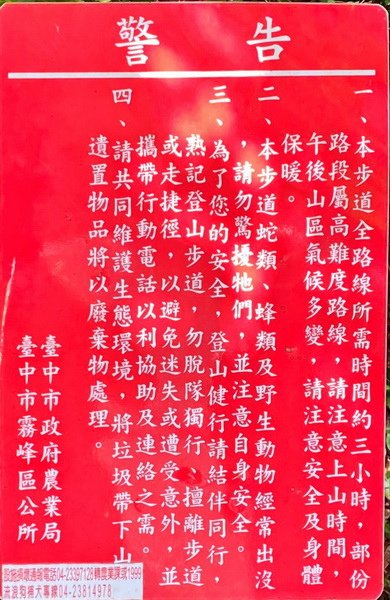 警告
一、本步道全路線所需時間約三小時，部份
路段屬高難度路線，請注意上山時間，
午後山區氣候多變，請注意安全及身體
保暖。
二、本步道蛇類、蜂類及野生動物經常出沒
，請勿驚擾牠們，並注意自身安全。
三、為了您的安全，登山健行請結伴同行，
熟記登山步道，勿脫隊獨行、擅離步道
或走捷徑，以避免迷失或遭受意外，並
攜帶行動電話以利協助及連絡之需。
四、請共同維護生態環境，將垃圾帶下山
遺置物品將以廢棄物處理。
臺中市政府農業局
臺中市霧峰區公所
設施損壞通報電話04-23397128轉農業課或1999
流浪狗捕犬專線04-23814978